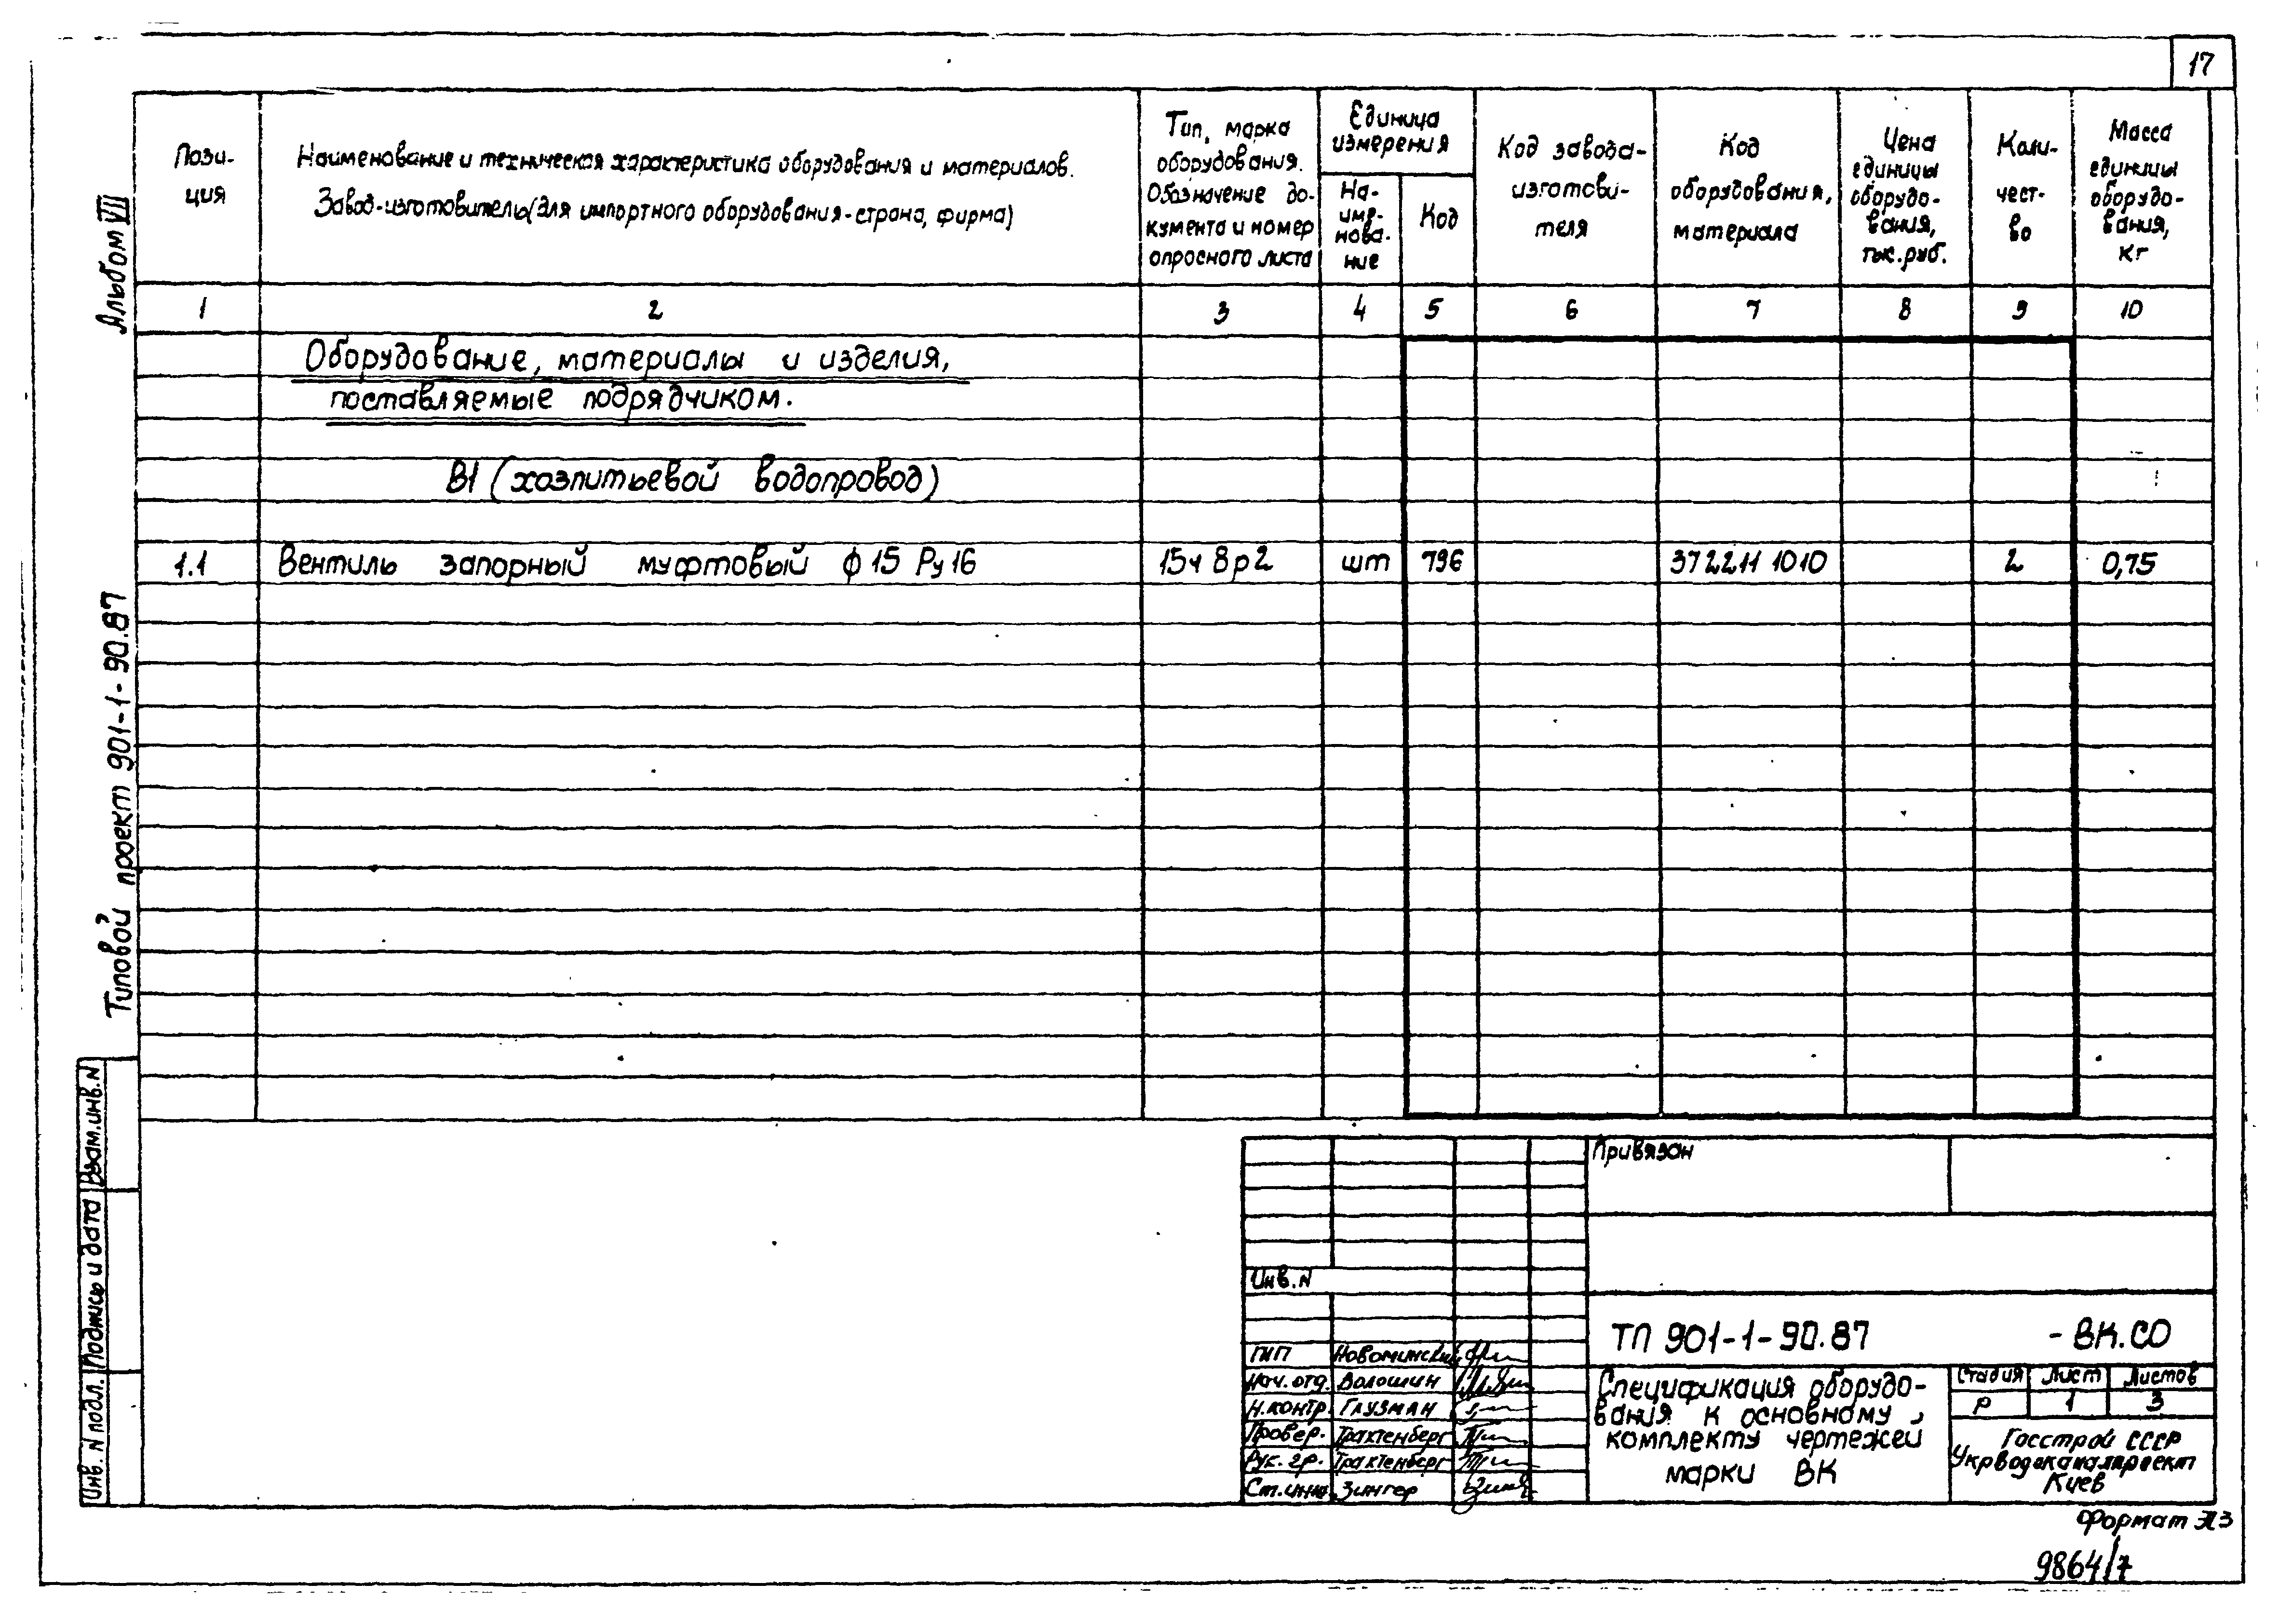 17
Альбом VII
Типовой проект 901-1-90.87
Пози-
ция
Наименование и техническая характеристика оборудования и материалов.
Завод-изготовитель (для импортного оборудования-страна, фирма)
Тип, марка
оборудования.
Обазначение до-
кумента и номер
опросного листа
Единица
измерения
На-
име-
нова-
ние
Код
Код завода-
изготови-
теля
Код
оборудования,
материала
Цена
единицы
оборудо-
вания,
тыс.руб.
Коли-
чест-
во
Масса
единицы
оборудо-
вания,
кг
1 2 3 4 5 6 7 8 9 10
Оборудование, материалы и изделия,
поставляемые подрядчиком.
В1 (хозпитьевой водопровод)
1.1 Вентиль запорный муфтовый ф 15 Ру 16 15ч 8р2 шт 796 372211 1010 2 0,75
Взам.инв.N
Подпись и дата
Инв. N подл.
Привязан
Инв. N
ТП 901-1-90.87 - ВК.СО
ГИП Новоминский
Нач.отд. Волошин
Н.контр. Глузман
Провер. Трахтенберг
Рук. гр. Трахтенберг
Ст.инж. Зингер
Спецификация оборудо-
вания к основному
комплекту чертежей
марки ВК
Стадия Лист Листов
Р 1 3
Госстрой СССР
Укрводоканалпроект
Киев
Формат А3
9864/7